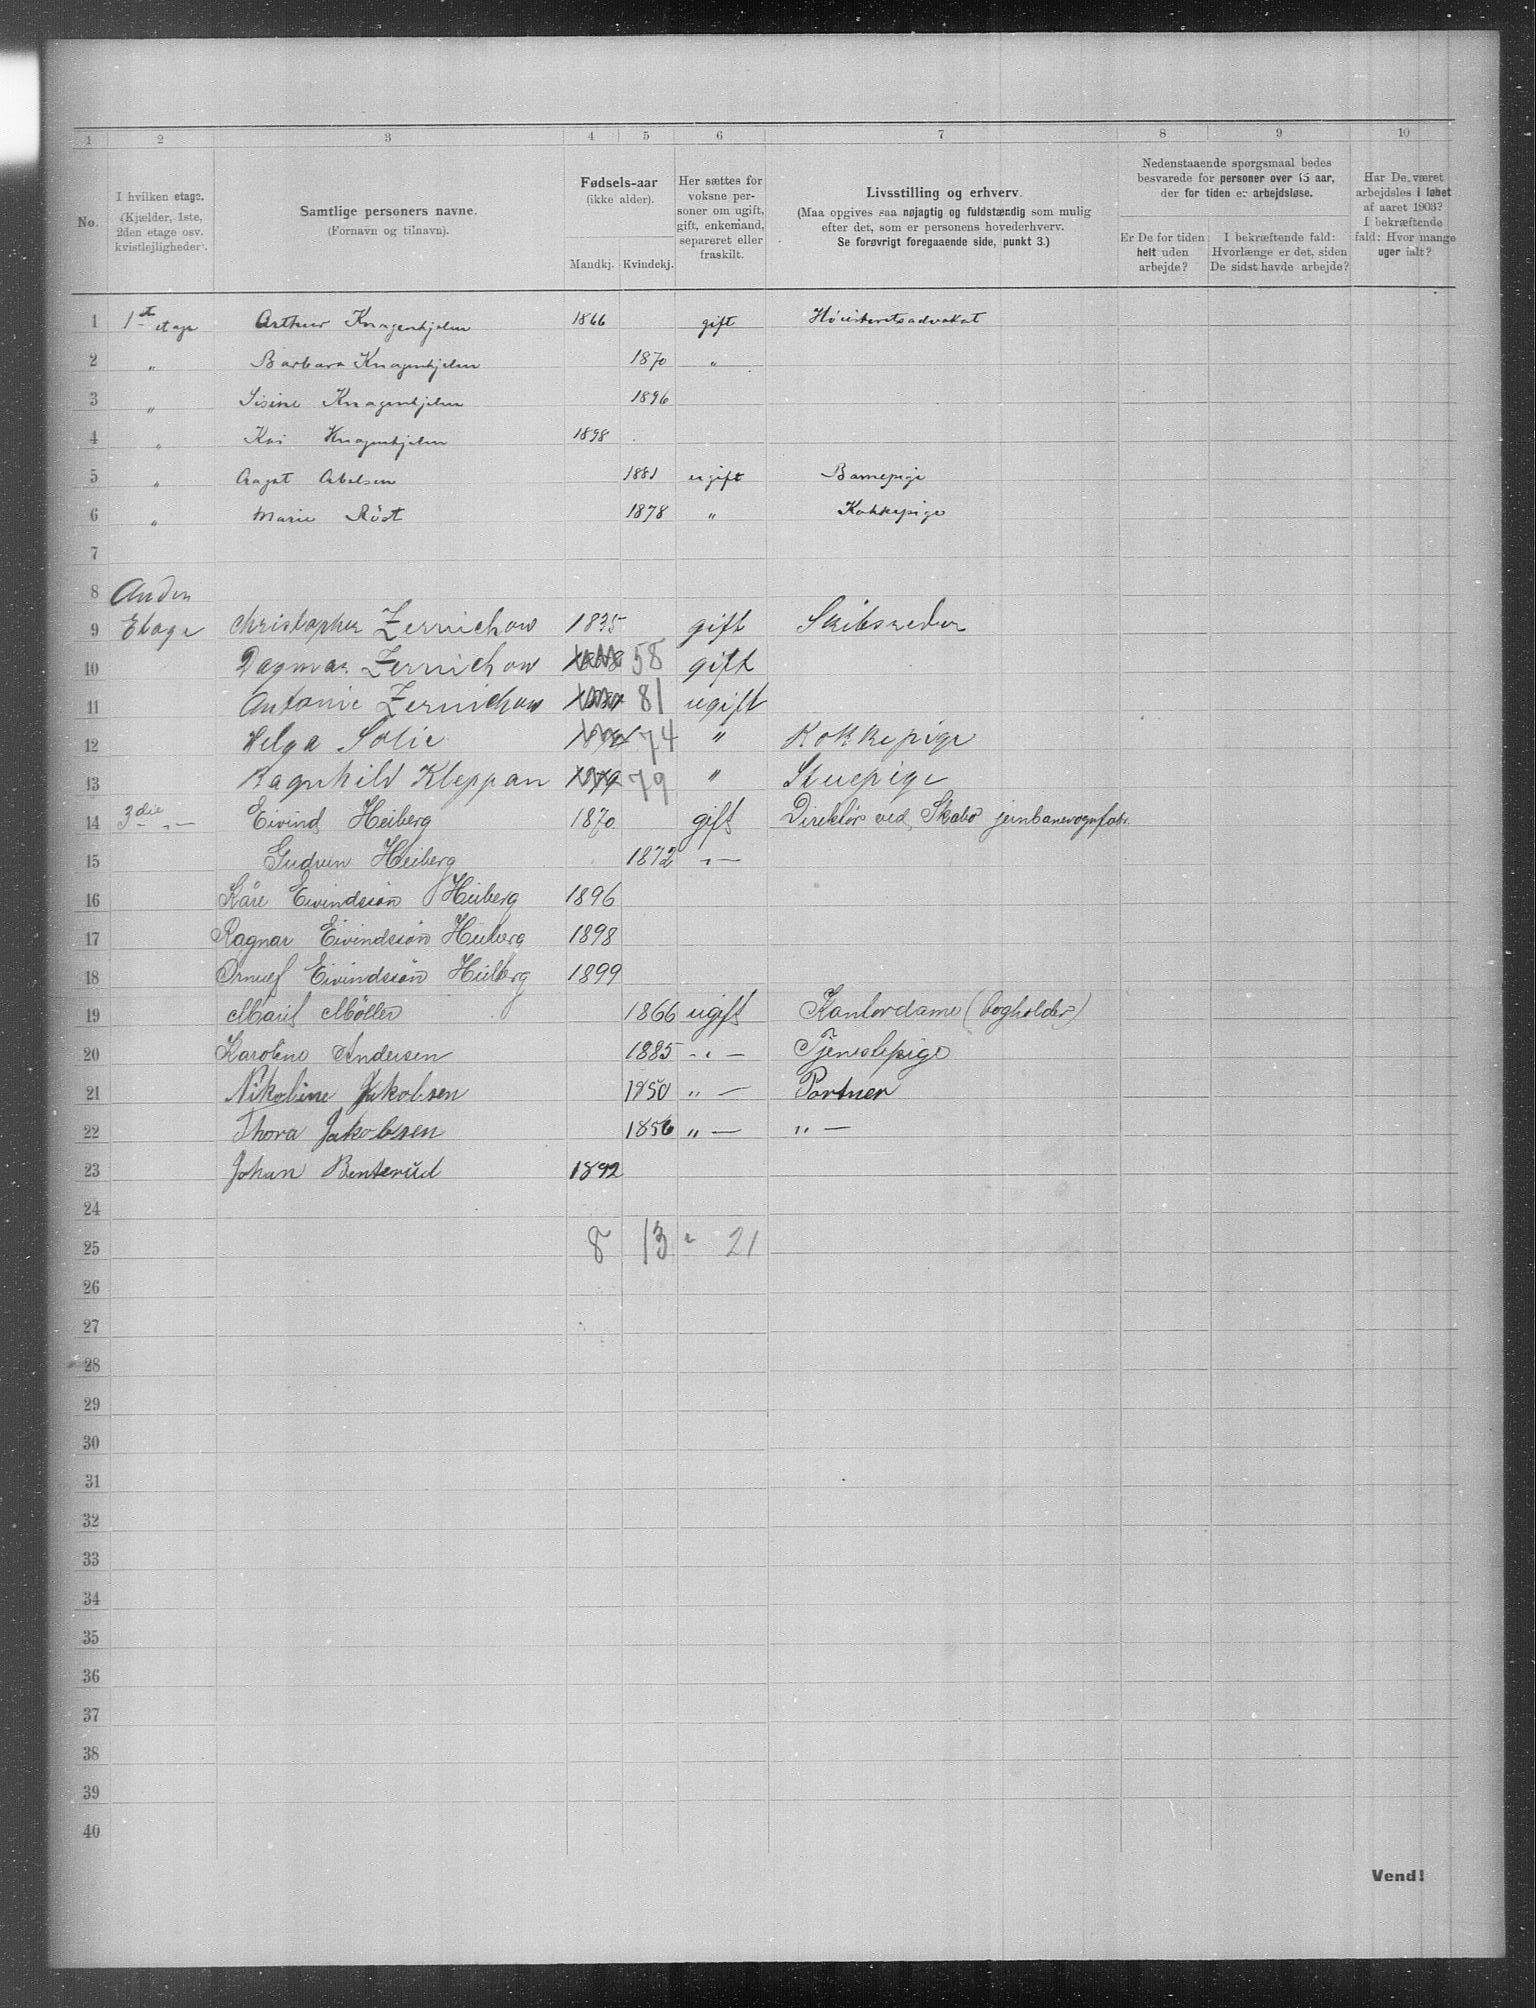 1 2 3 4 5 6 7 8 9 10
No.
I hvilken etage. (Kjælder, 1ste, 2den etage osv. kvistlejligheder).
Samtlige personers navne. (Fornavn og tilnavn).
Fødsels-aar (ikke alder).
Mandkj. Kvindekj.
Her sættes for voksne personer om ugift, gift, enkemand, separeret eller fraskilt.
Livsstilling og erhverv.
(Maa opgives saa nøjagtig og fuldstændig som mulig efter det, som er personens hovederhverv.
Se forøvrigt foregaaende side, punkt 3.)
Nedenstaaende spørgsmaal bedes besvarede for personer over 15 aar, der for tiden er arbejdsløse.
Er De for tiden helt uden arbejde?
I bekræftende fald: Hvorlænge er det, siden De sidst havde arbejde?
Har De været arbejdsløs i løbet af aaret 1903? I bekræftende fald: Hvor mange uger ialt?
1 1st etage Arthur Knagenhjelm 1866 gift Høiesteretsadvokat
2 " Barbara Knagenhjelm 1870 "
3 " Sisine Knagenhjelm 1896
4 " Kai Knagenhjelm 1898
5 " Aagot Abelsen 1881 ugift Barnepige
6 " Marie Röst 1878 " Kokkepige
7
8 Anden
9 Etage Christopher Zernichow 1835 gift Skibsreder
10 Dagmar Zernichow 58 gift
11 Antonie Zernichow 81 ugift
12 Helga Solie 74 " Kokkepige
13 Ragnhild Kleppan 79 " Stuepige
14 3die -"- Eivind Heiberg 1870 gift Direktör ved Skabo jernbanevognfabr.
15 Gudrun Heiberg 1872 -"-
16 Kåre Eivindssön Heiberg 1896
17 Ragnar Eivindssön Heiberg 1898
18 Ørnulf Eivindssön Heiberg 1899
19 Marie Möller 1866 ugift Kontordame (bogholder)
20 Karoline Andersen 1885 -"- Tjenestepige
21 Nikoline Jakobsen 1850 " — Portner
22 Thora Jakobsen 1856 " — " —
23 Johan Benterud 1892
24
25 8 13 = 21
26
27
28
29
30
31
32
33
34
35
36
37
38
39
40
Vend!